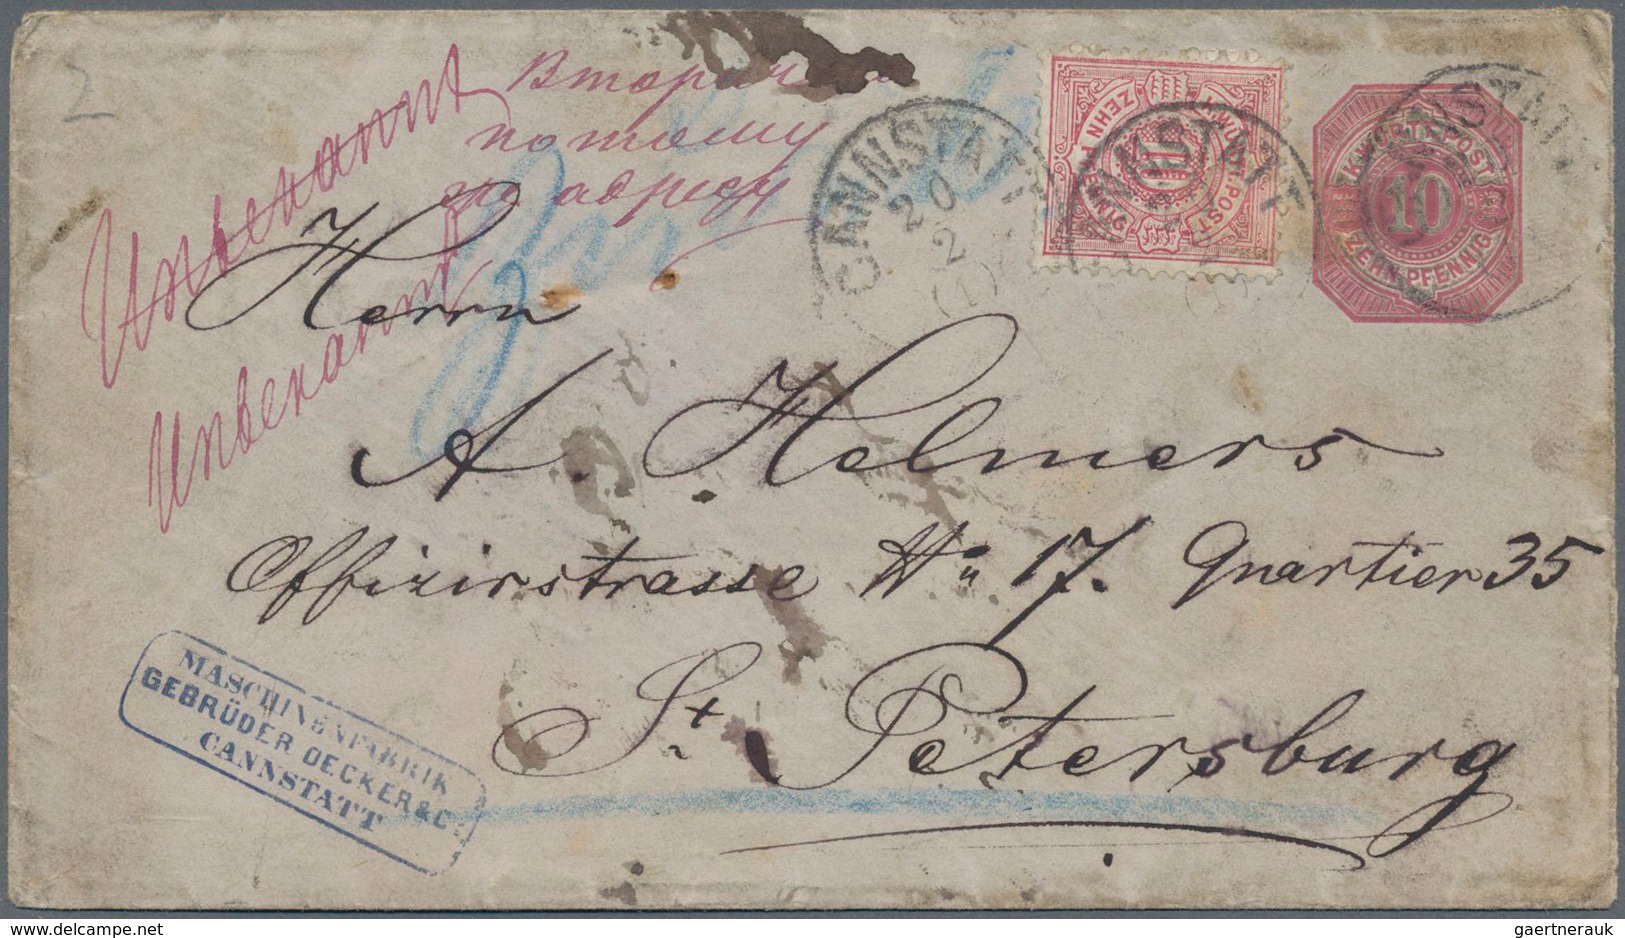 2
Unbekannt
Unbekannt
Вторич
потому
же адресу
CANNSTATT
20
2
(1)
K.WÜRTT.POST
ZEHN PFENNIG
10
K.WÜRTT.POST
10
ZEHN PFENNIG
Herrn
A. Helmers
Offizirstrasse No 17. Quartier 35
St. Petersburg
MASCHINENFABRIK
GEBRÜDER DECKER & Co.
CANNSTATT
delcampe.net
gaertnerauk